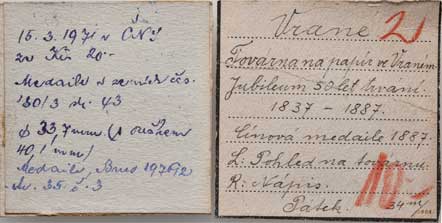 15.3.1971 v ČNS
za Kčs 20.-
Medaile a
130/3 str. 43
33,7 mm (s
40,1 mm)
Medaile, Brno 1976/2
str. 35 č. 3
Vrané 2
Továrna na papír ve Vraném.
Jubileum 50 let trvání
1837 - 1887.
Cínová medaile 1887.
L: Pohled na továrnu.
R: Nápis.
Patek 34 m/m